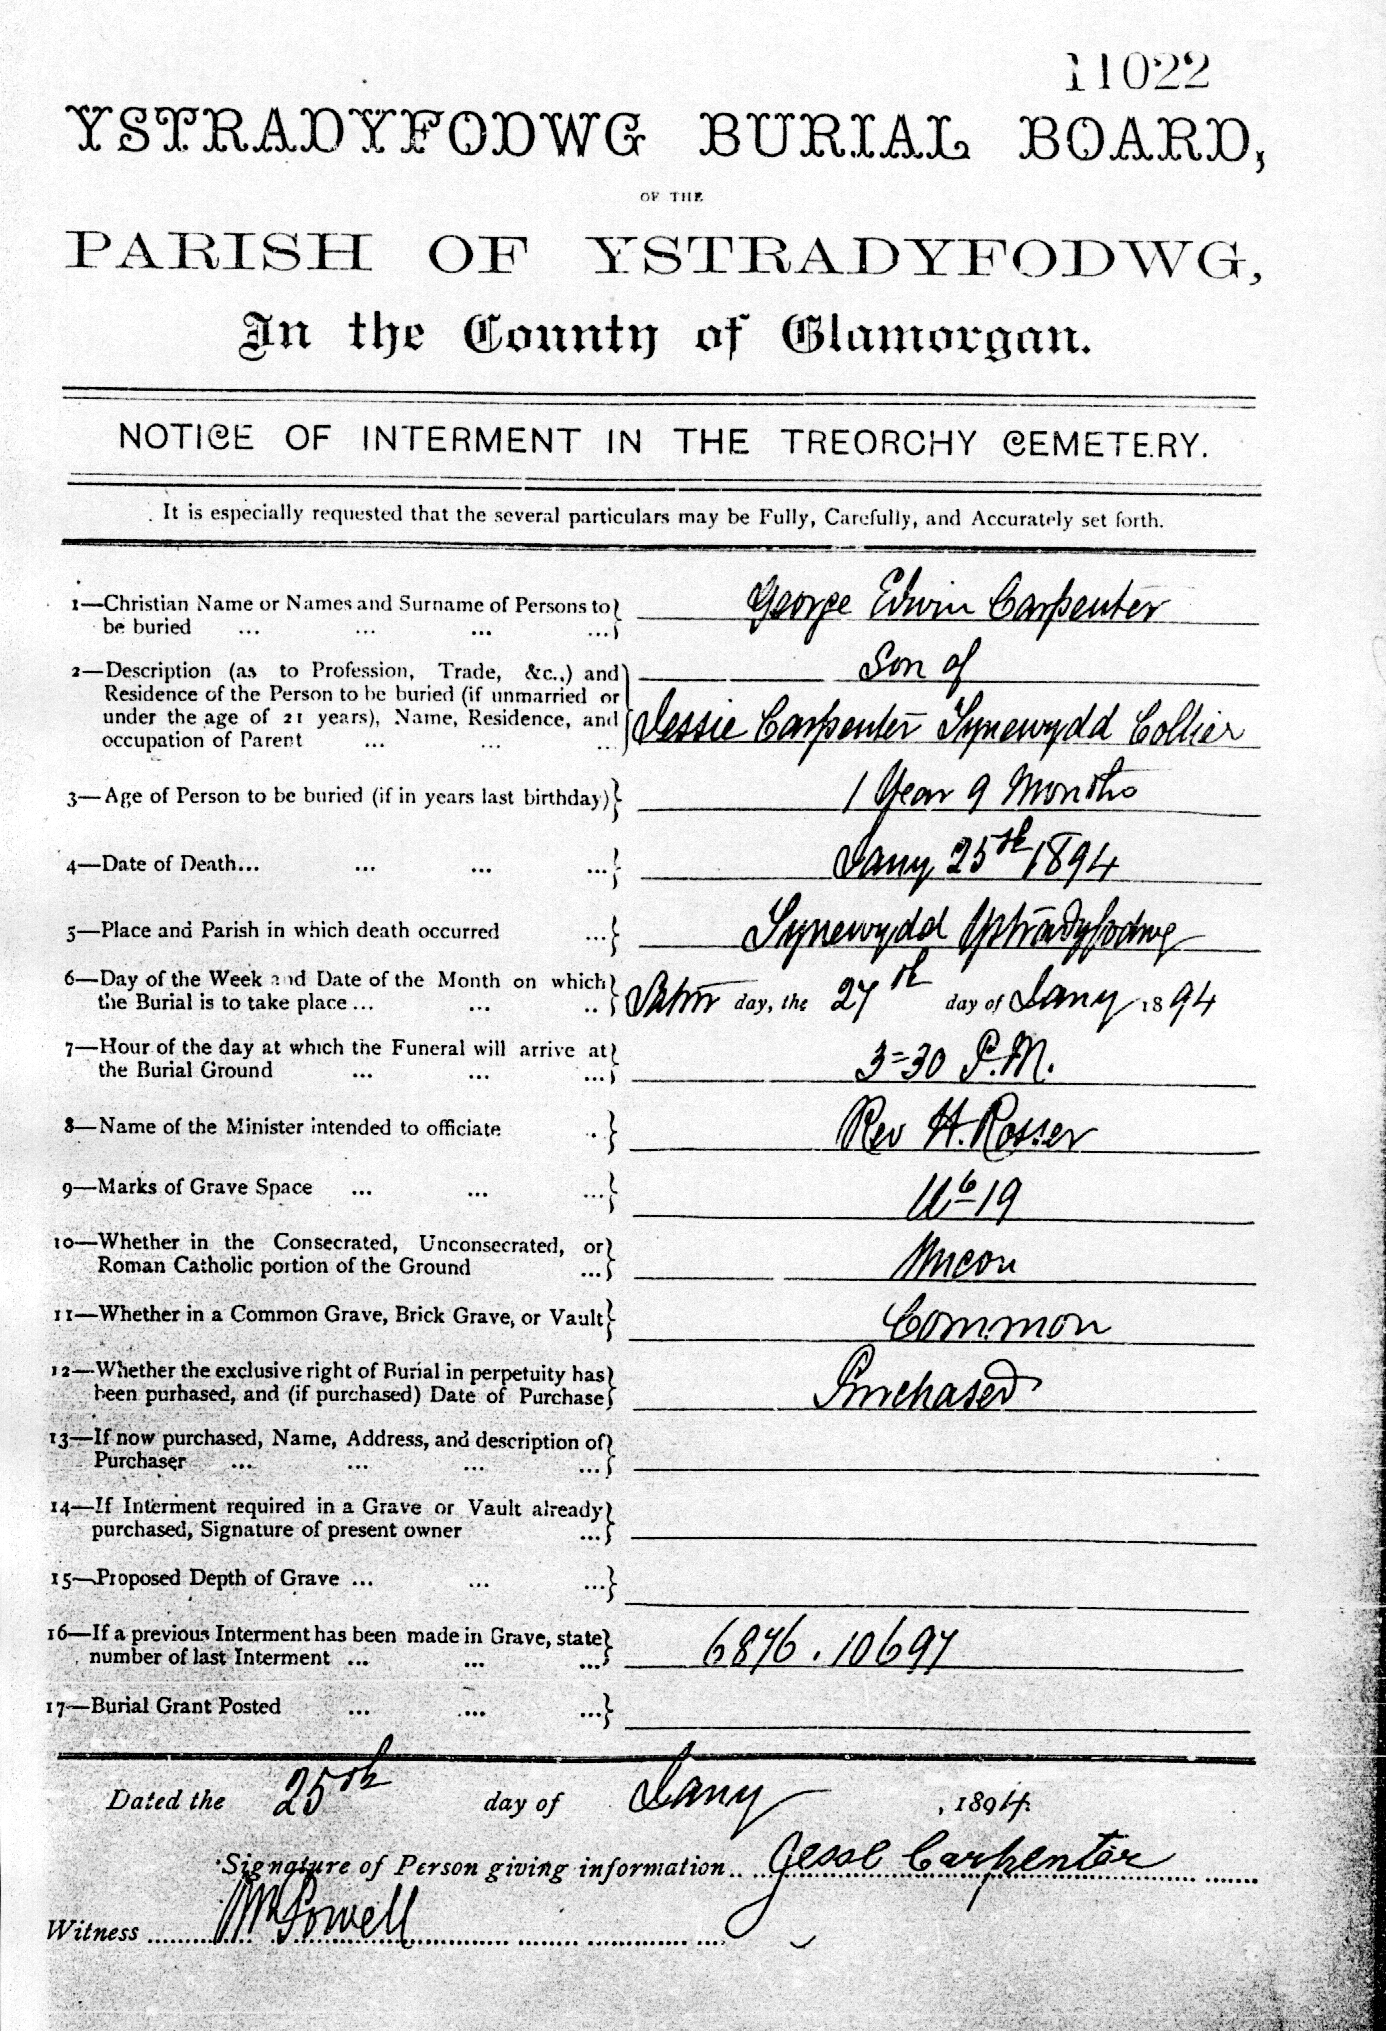 11022
YSTRADYFODWG BURIAL BOARD,
OF THE
PARISH OF YSTRADYFODWG,
In the County of Glamorgan.
NOTICE OF INTERMENT IN THE TREORCHY CEMETERY.
It is especially requested that the several particulars may be Fully, Carefully, and Accurately set forth.
1—Christian Name or Names and Surname of Persons to George Edwin Carpenter
be buried ... ... ... ...
2—Description (as to Profession, Trade, &c.,) and Son of
Residence of the Person to be buried (if unmarried or
under the age of 21 years), Name, Residence, and Jessie Carpenter Tynewydd Collier
occupation of Parent ... ... ...
3—Age of Person to be buried (if in years last birthday) 1 Year 9 Months
4—Date of Death... ... ... ... Jany 25th 1894
5—Place and Parish in which death occurred ... Tynewydd Ystradyfodwg
6—Day of the Week and Date of the Month on which
the Burial is to take place ... ... .. Satur day, the 27th day of Jany 1894
7—Hour of the day at which the Funeral will arrive at 3=30 P.M.
the Burial Ground ... ... ...
8—Name of the Minister intended to officiate . . Rev H. Rosser
9—Marks of Grave Space ... ... ... 19
10—Whether in the Consecrated, Unconsecrated, or Uncon
Roman Catholic portion of the Ground ...
11—Whether in a Common Grave, Brick Grave, or Vault Common
12—Whether the exclusive right of Burial in perpetuity has Purchased
been purhased, and (if purchased) Date of Purchase
13—If now purchased, Name, Address, and description of
Purchaser ... ... ... ...
14—If Interment required in a Grave or Vault already
purchased, Signature of present owner ...
15—Proposed Depth of Grave ... ... ...
16—If a previous Interment has been made in Grave, state 6876 . 10697
number of last Interment ... ... ...
17—Burial Grant Posted ... ... ...
Dated the 25th day of Jany, 1894.
Signature of Person giving information .. Jesse Carpenter
Witness Wm Powell